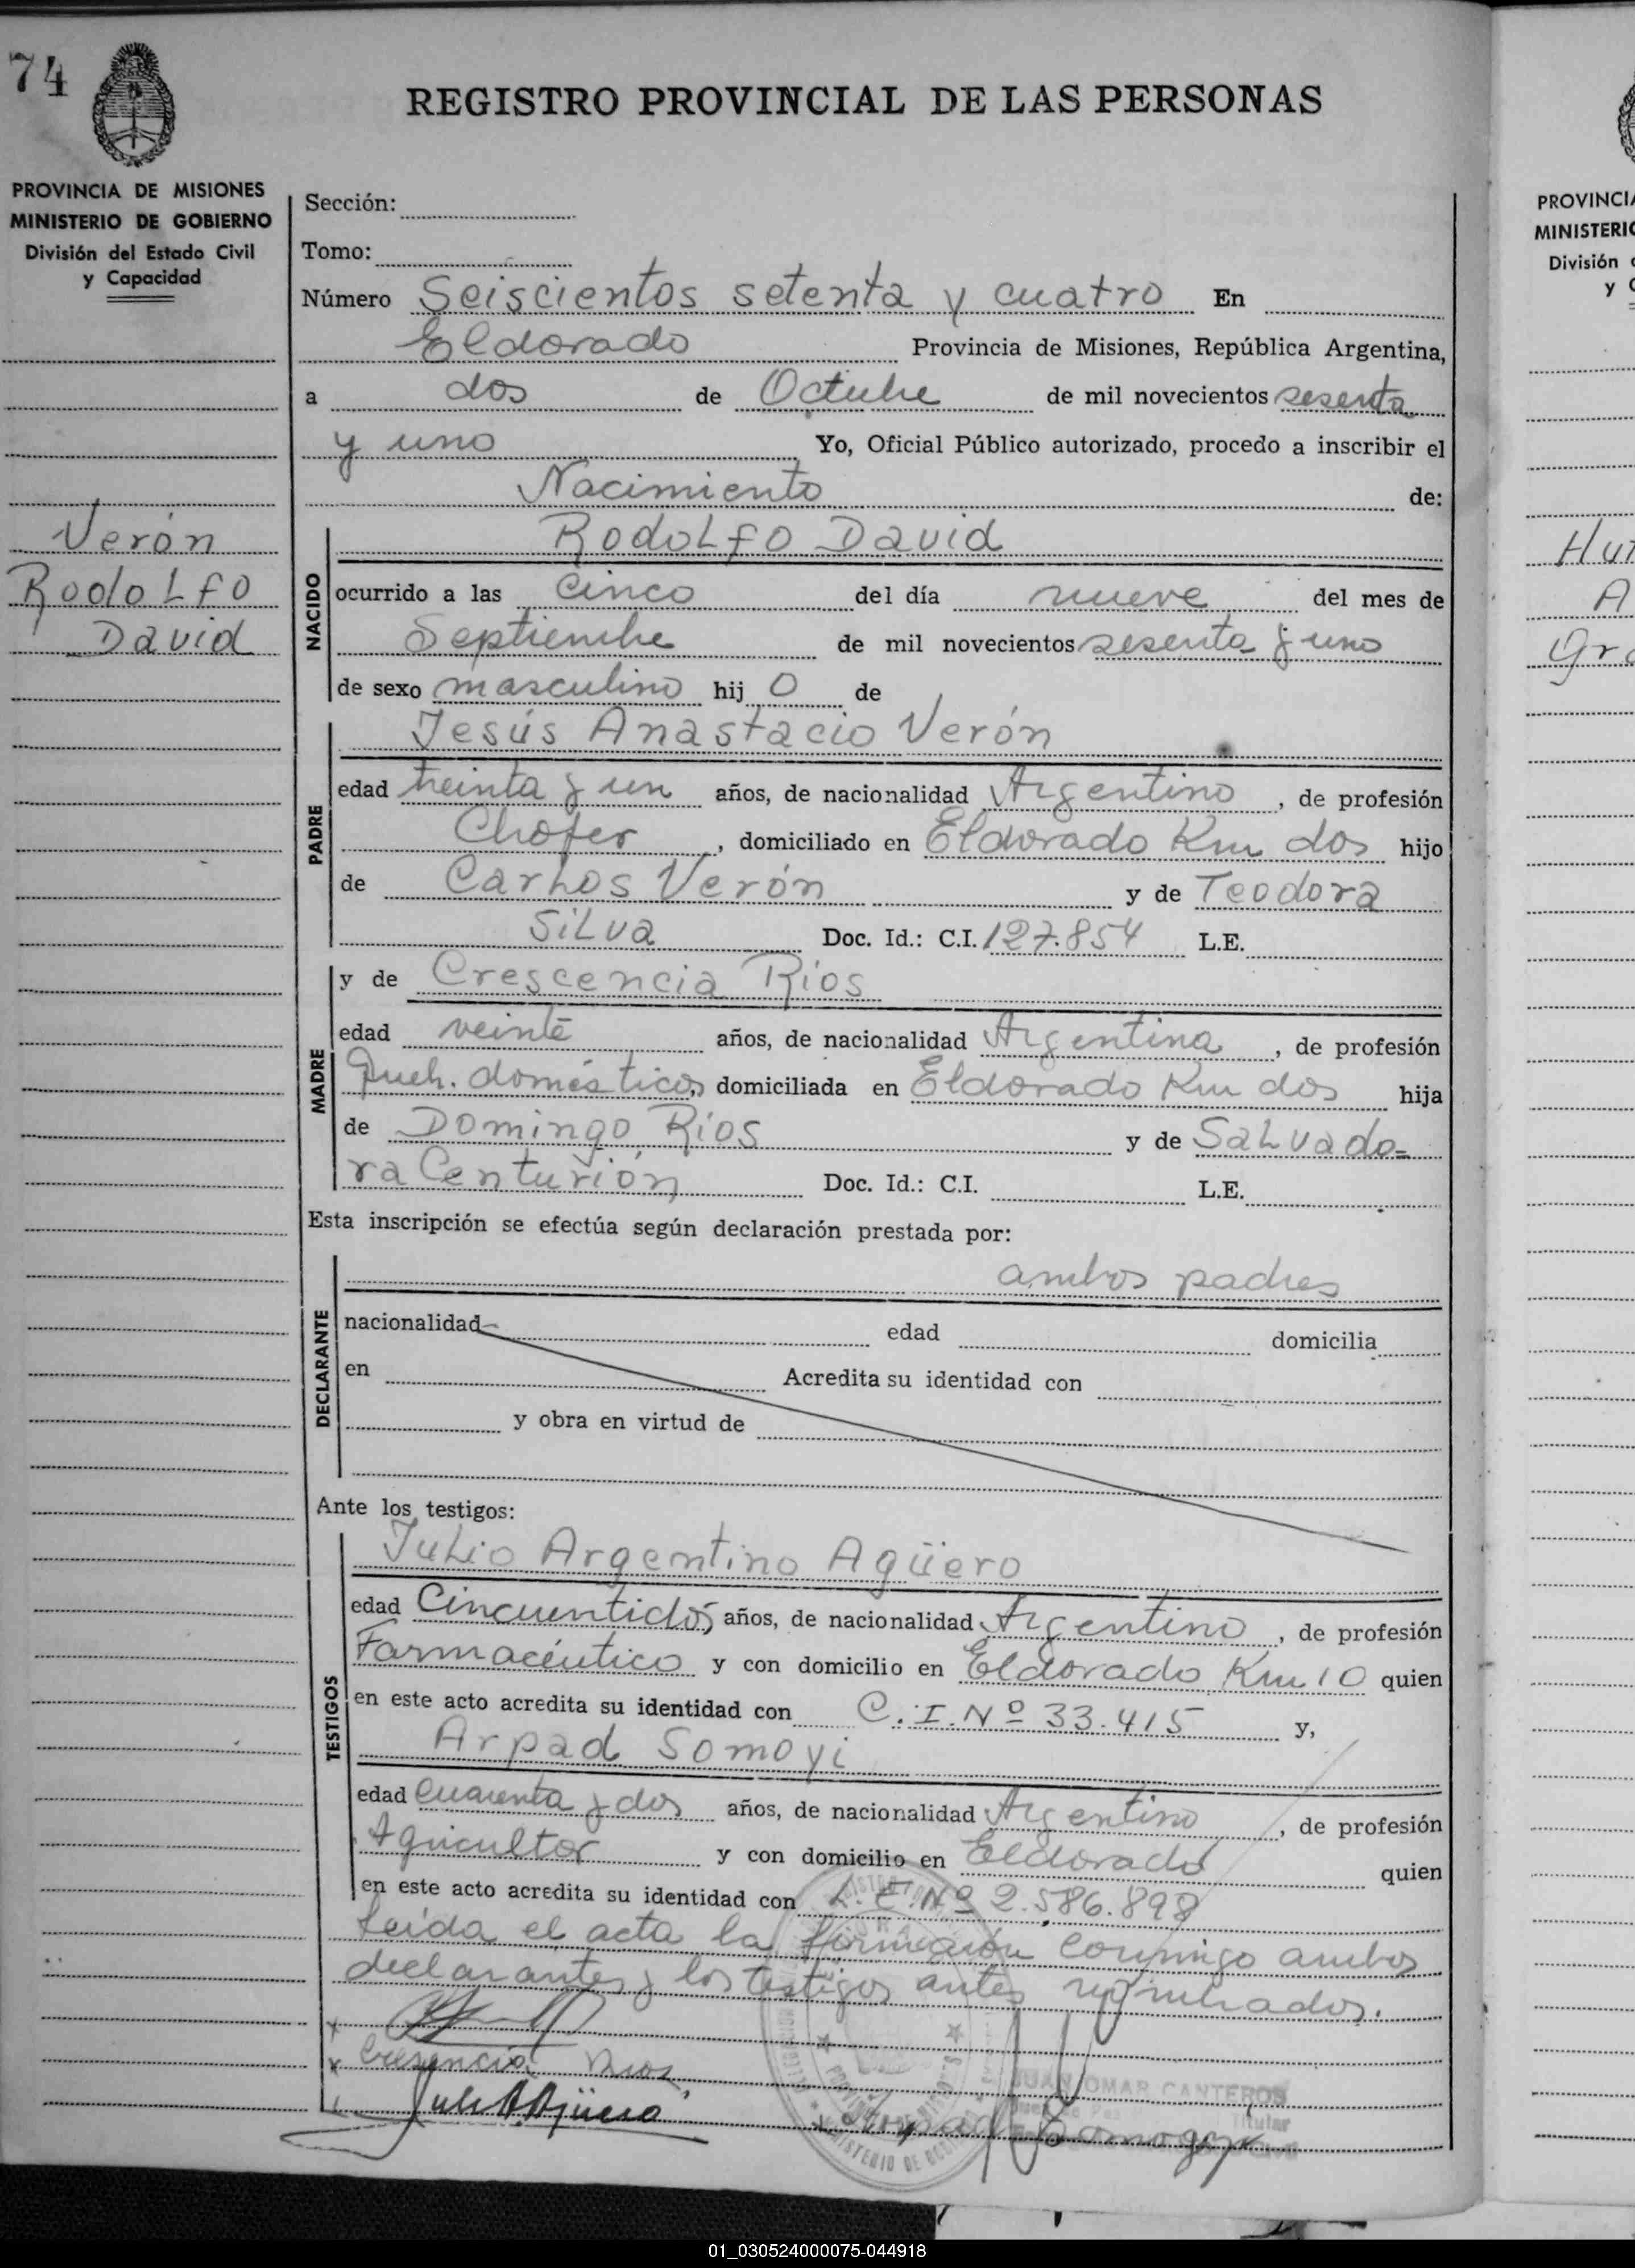 74
REGISTRO PROVINCIAL DE LAS PERSONAS
PROVINCIA DE MISIONES
MINISTERIO DE GOBIERNO
División del Estado Civil
y Capacidad
Verón
Rodolfo
David
Sección:
Tomo:
Número Seiscientos setenta y cuatro En
Eldorado Provincia de Misiones, República Argentina,
a dos de Octubre de mil novecientos sesenta
y uno Yo, Oficial Público autorizado, procedo a inscribir el
Nacimiento de:
NACIDO
Rodolfo David
ocurrido a las cinco del día nueve del mes de
Septiembre de mil novecientos sesenta y uno
de sexo masculino hij o de
PADRE
Jesús Anastacio Verón
edad treinta y un años, de nacionalidad Argentino, de profesión
Chofer, domiciliado en Eldorado Km dos hijo
de Carlos Verón y de Teodora
Silva Doc. Id.: C.I. 127.854 L.E.
MADRE
y de Crescencia Ríos
edad veinte años, de nacionalidad Argentina, de profesión
Queh. domésticos, domiciliada en Eldorado Km dos hija
de Domingo Ríos y de Salvado=
ra Centurión Doc. Id.: C.I. L.E.
Esta inscripción se efectúa según declaración prestada por:
DECLARANTE
ambos padres
nacionalidad edad domicilia
en Acredita su identidad con
y obra en virtud de
Ante los testigos:
TESTIGOS
Julio Argentino Agüero
edad Cincuentidós años, de nacionalidad Argentino, de profesión
Farmacéutico y con domicilio en Eldorado Km 10 quien
en este acto acredita su identidad con C.I. Nº 33.415 y,
Arpad Somoyi
edad cuarenta y dos años, de nacionalidad Argentino, de profesión
Agricultor y con domicilio en Eldorado quien
en este acto acredita su identidad con L.E. Nº 2.586.898
Leída el acta la firmaron conmigo ambos
declarantes y los testigos antes nombrados.
Cresencia Rios
Julio A. Agüero
JUAN OMAR CANTEROS
Titular
Arpad Somogyi
PROVINCIA
MINISTERIO
División
y
Hu
A
Gra
01_030524000075-044918